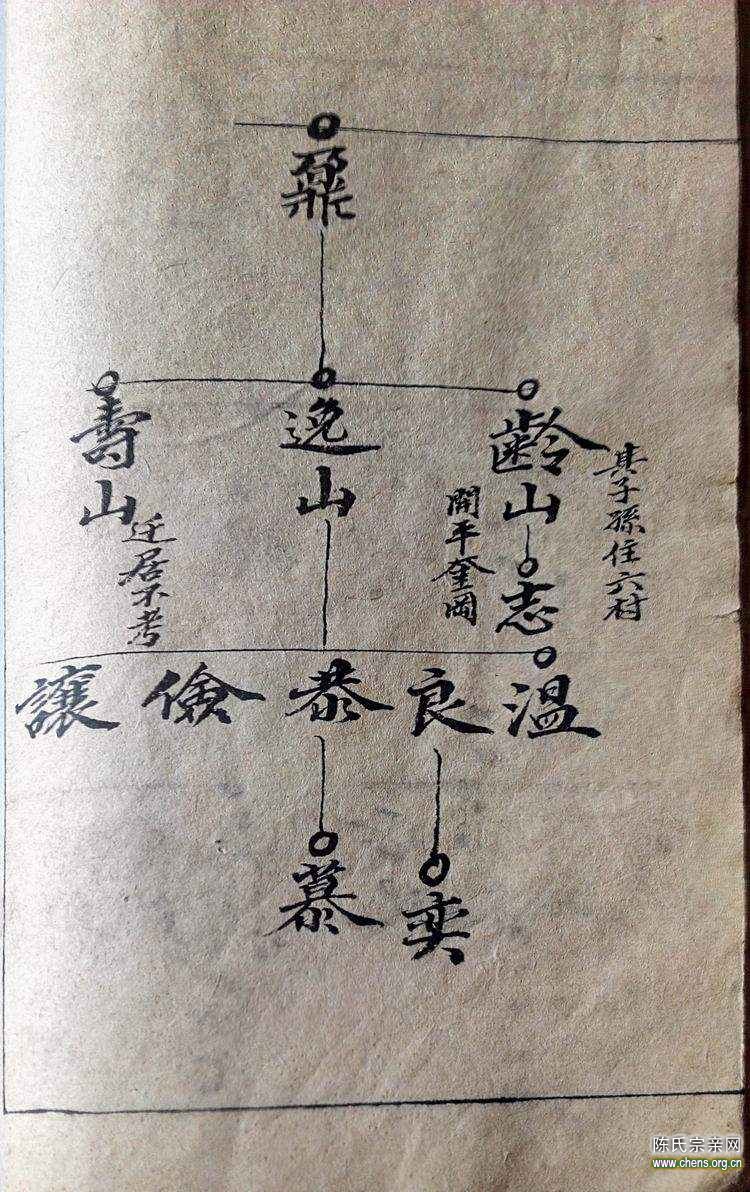 齢山
其子孫住六村
志
開平奎岡
逸山
壽山
迁居不考
温
良
恭
儉
讓
奕
慕
陈氏宗亲网
www.chens.org.cn